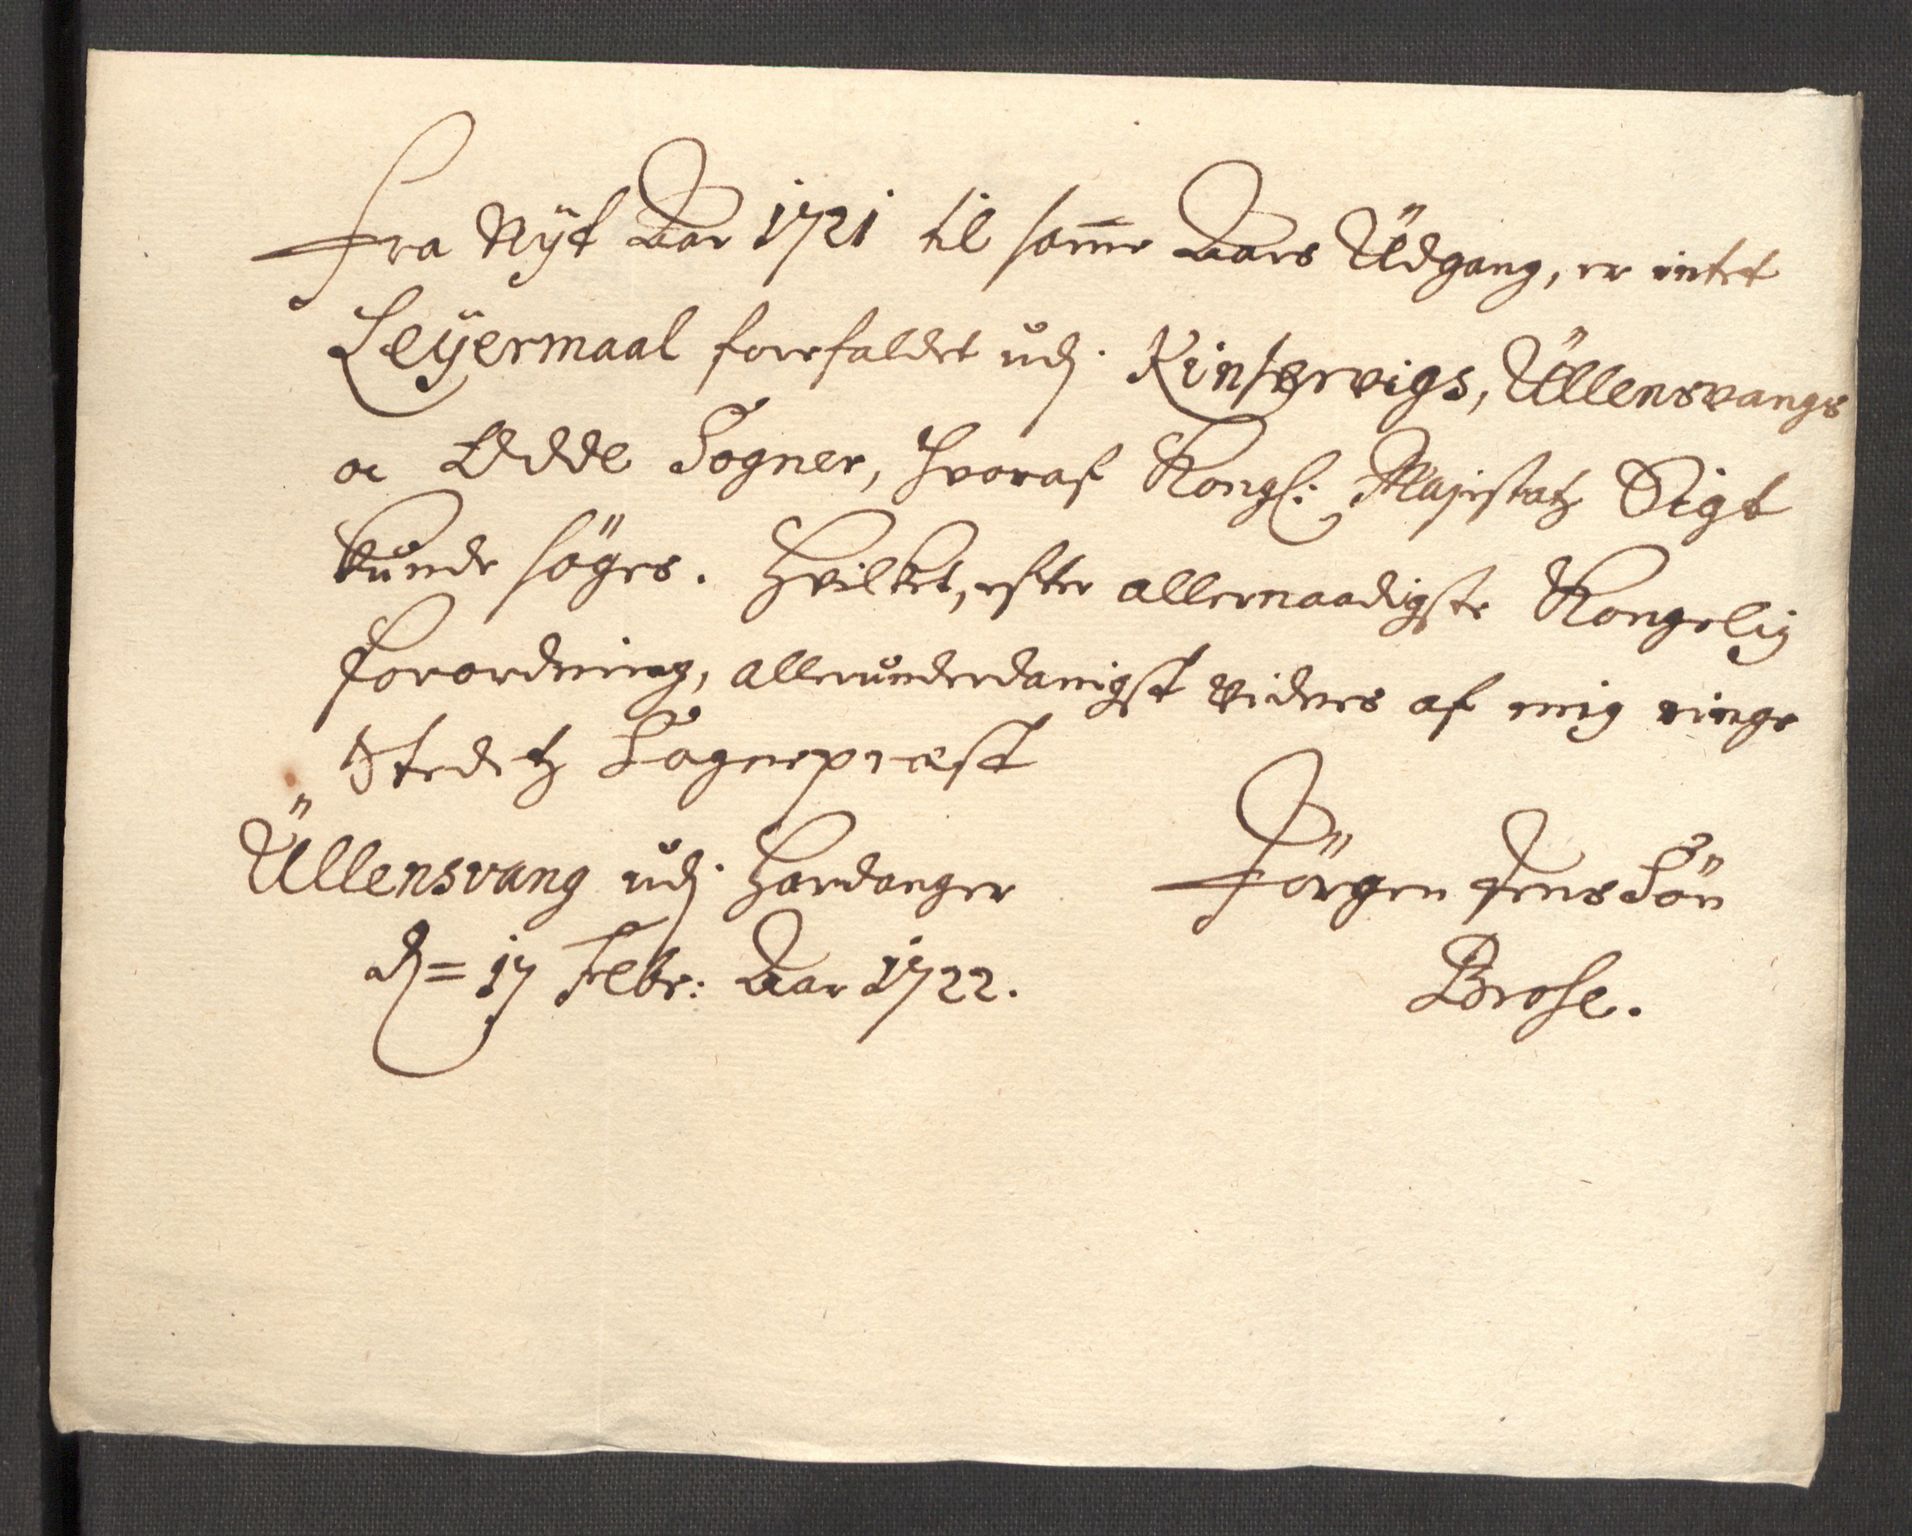 Fra Nÿt Aar 1721 til som̅e Aars Üdgang, er intet
Leÿermaal forefaldet udj Kinservigs, Üllensvangs
oc Odde Sogner, hvoraf Kongl: Majestatz Sigt
kunde söges. Hvilket, efter allernaadigste Kongelig
forordning, allerunderdanigst vidnes af mig ringe
Stedetz Sognepræst
Üllensvang udj Hardanger
d = 17 Febr: Aar 1722.
Jörgen Jens Sön
Brose.